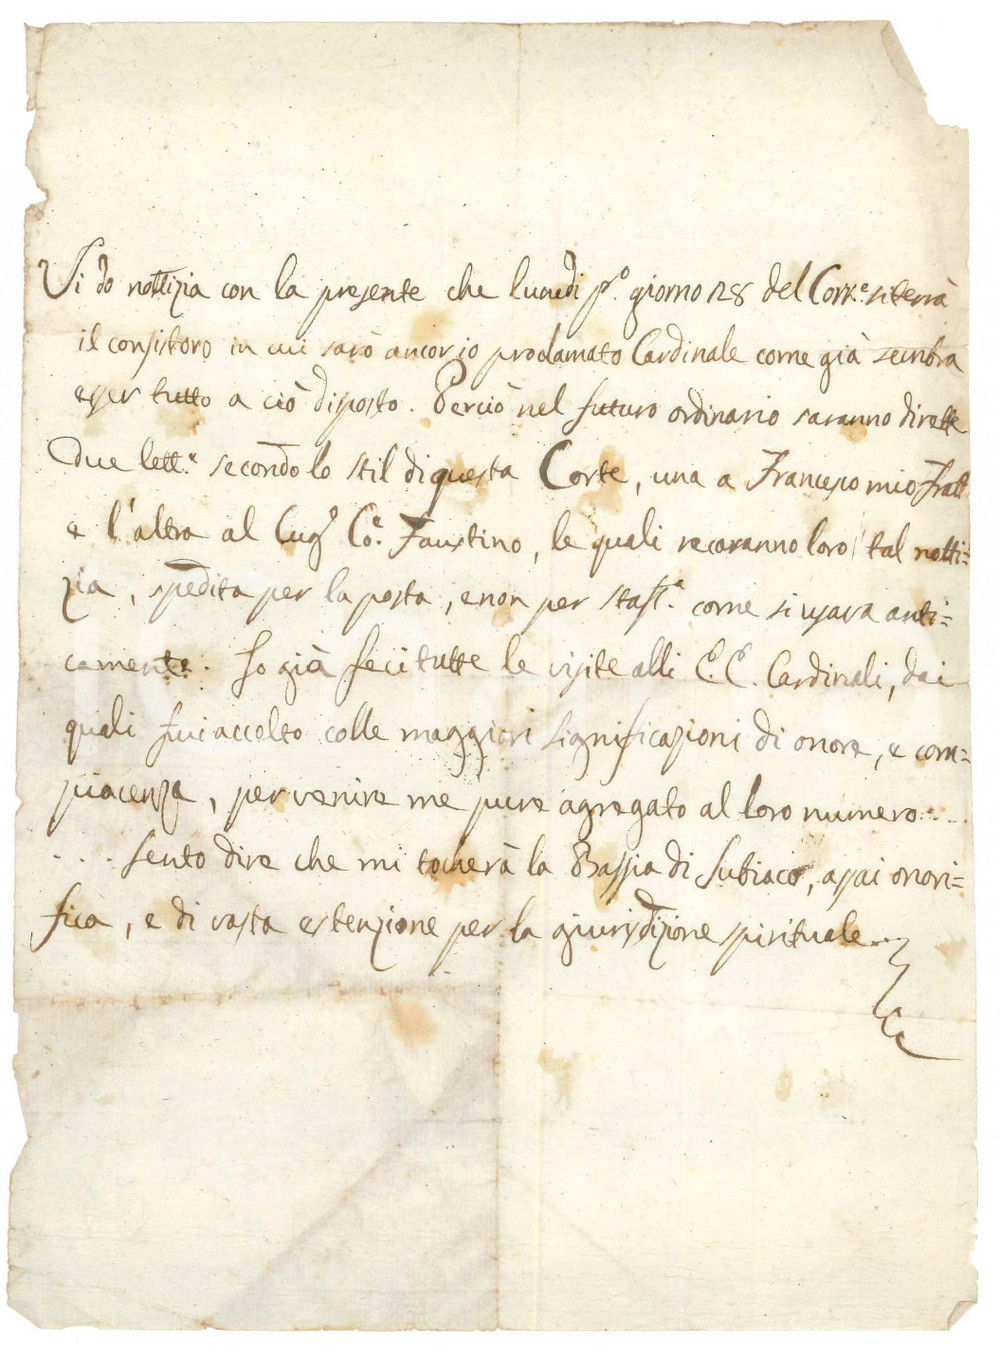 Vi do nottizia con la presente che lunedì p.º giorno 28 del Corr.e si terrà
il consistoro in cui sarò ancor io proclamato Cardinale come già sembra
esser tutto a ciò disposto. Perciò nel futuro ordinario saranno dirette
due lett.e secondo lo stil di questa Corte, una a Francesco mio Frat
e l'altra al Cug.º Co. Faustino, le quali recoranno loro tal notti=
zia, spedita per la posta, e non per staff.a come si usava anti=
camente. Io già feci tutte le visite alli E.E. Cardinali, dai
quali fui accolto colle maggiori significazioni di onore, e com=
piacenza, per venire me pure agregato al loro numero....
.... Sento dire che mi tocherà la Bassia di Subiaco, assai onori=
fica, e di vasta estenzione per la giurisdizione spirituale...